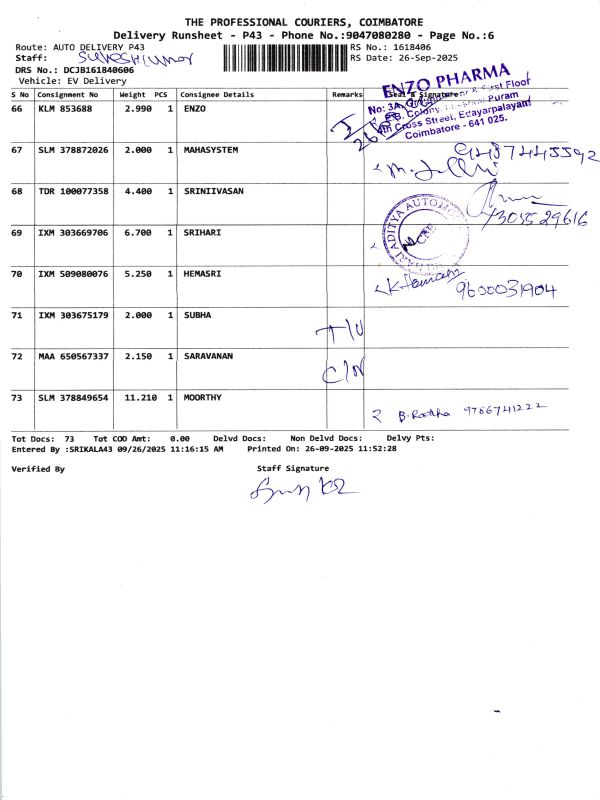 THE PROFESSIONAL COURIERS, COIMBATORE
Delivery Runsheet - P43 - Phone No.:9047080280 - Page No.:6
Route: AUTO DELIVERY P43 RS No.: 1618406
Staff: Sureshkumar RS Date: 26-Sep-2025
DRS No.: DCJB161840606
Vehicle: EV Delivery
S No Consignment No Weight PCS Consignee Details Remarks Seal & Signature
66 KLM 853688 2.990 1 ENZO
ENZO PHARMA
First Floor
No: 3A, Puram
P.B. Colony,
4th Cross Street, Edayarpalayam
Coimbatore - 641 025.
67 SLM 378872026 2.000 1 MAHASYSTEM
68 TDR 100077358 4.400 1 SRINIIVASAN
69 IXM 303669706 6.700 1 SRIHARI
ADITYA AUTO
CBE
70 IXM 509080076 5.250 1 HEMASRI 9600031904
71 IXM 303675179 2.000 1 SUBHA T/U
72 MAA 650567337 2.150 1 SARAVANAN C/N
73 SLM 378849654 11.210 1 MOORTHY B. Radha 9786741222
Tot Docs: 73 Tot COD Amt: 0.00 Delvd Docs: Non Delvd Docs: Delvy Pts:
Entered By :SRIKALA43 09/26/2025 11:16:15 AM Printed On: 26-09-2025 11:52:28
Verified By Staff Signature